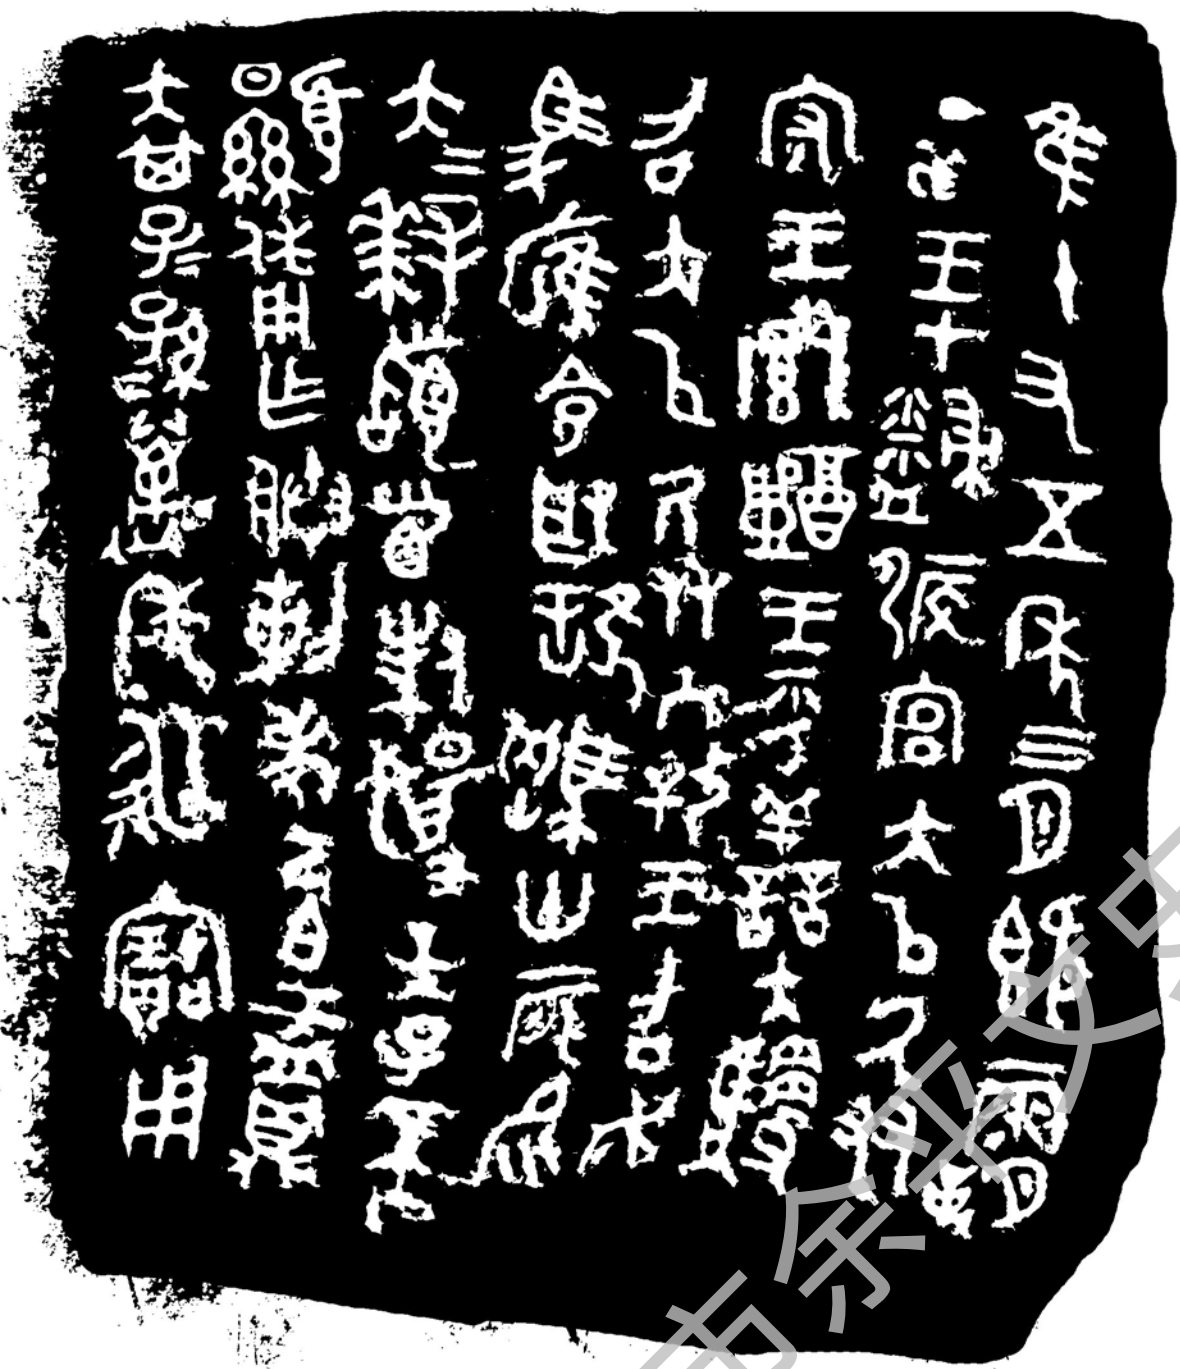 隹十又五年三月既霸
丁亥王才𥎦侲宮大以氒友
守王鄉醴王乎善夫騣
召大以氒友入攼王召走
馬雁令取騅騆卅二匹易
大大拜𩒨首對揚天子不
顯休用乍朕剌考己白盂鼎
大其子子孫孫萬年永寶用
余平文